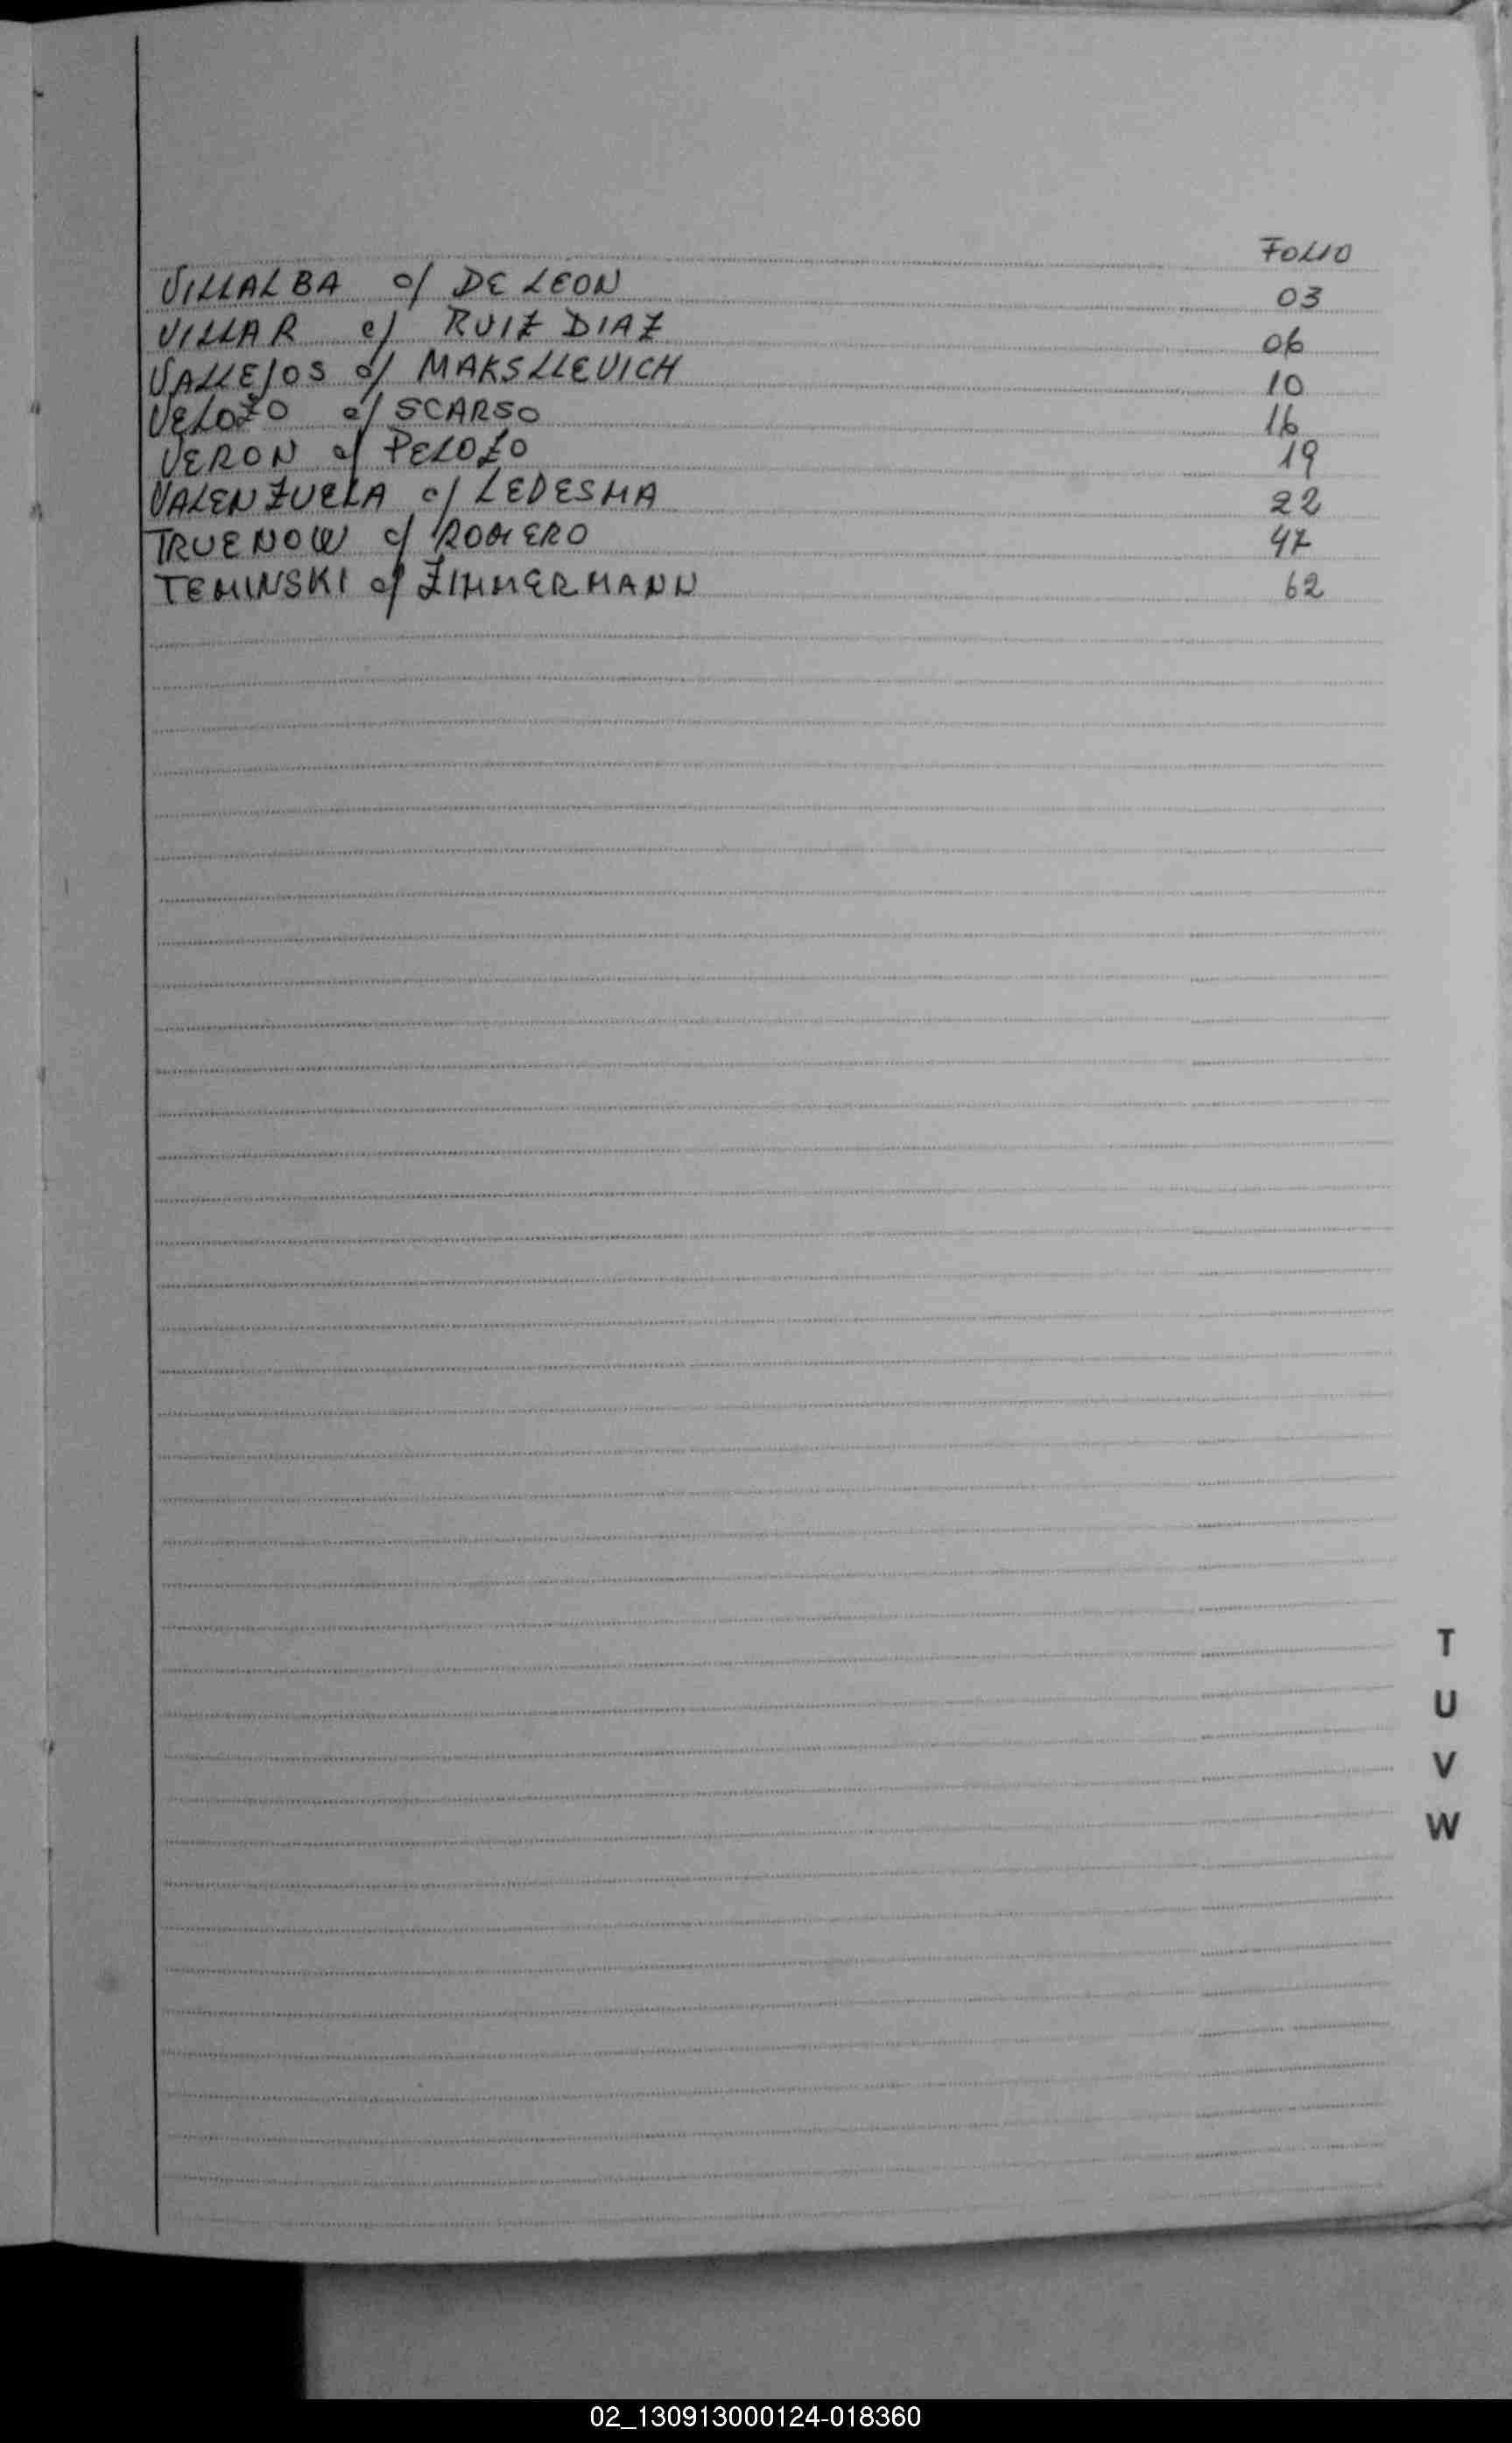 FOLIO
VILLALBA c/ DE LEON 03
VILLAR c/ RUIZ DIAZ 06
VALLEJOS c/ MAKSLLEVICH 10
VELOZO c/ SCARSO 16
VERON c/ PELOZO 19
VALENZUELA c/ LEDESMA 22
TRUENOW c/ ROMERO 47
TEMINSKI c/ ZIMMERMANN 62
T
U
V
W
02_130913000124-018360